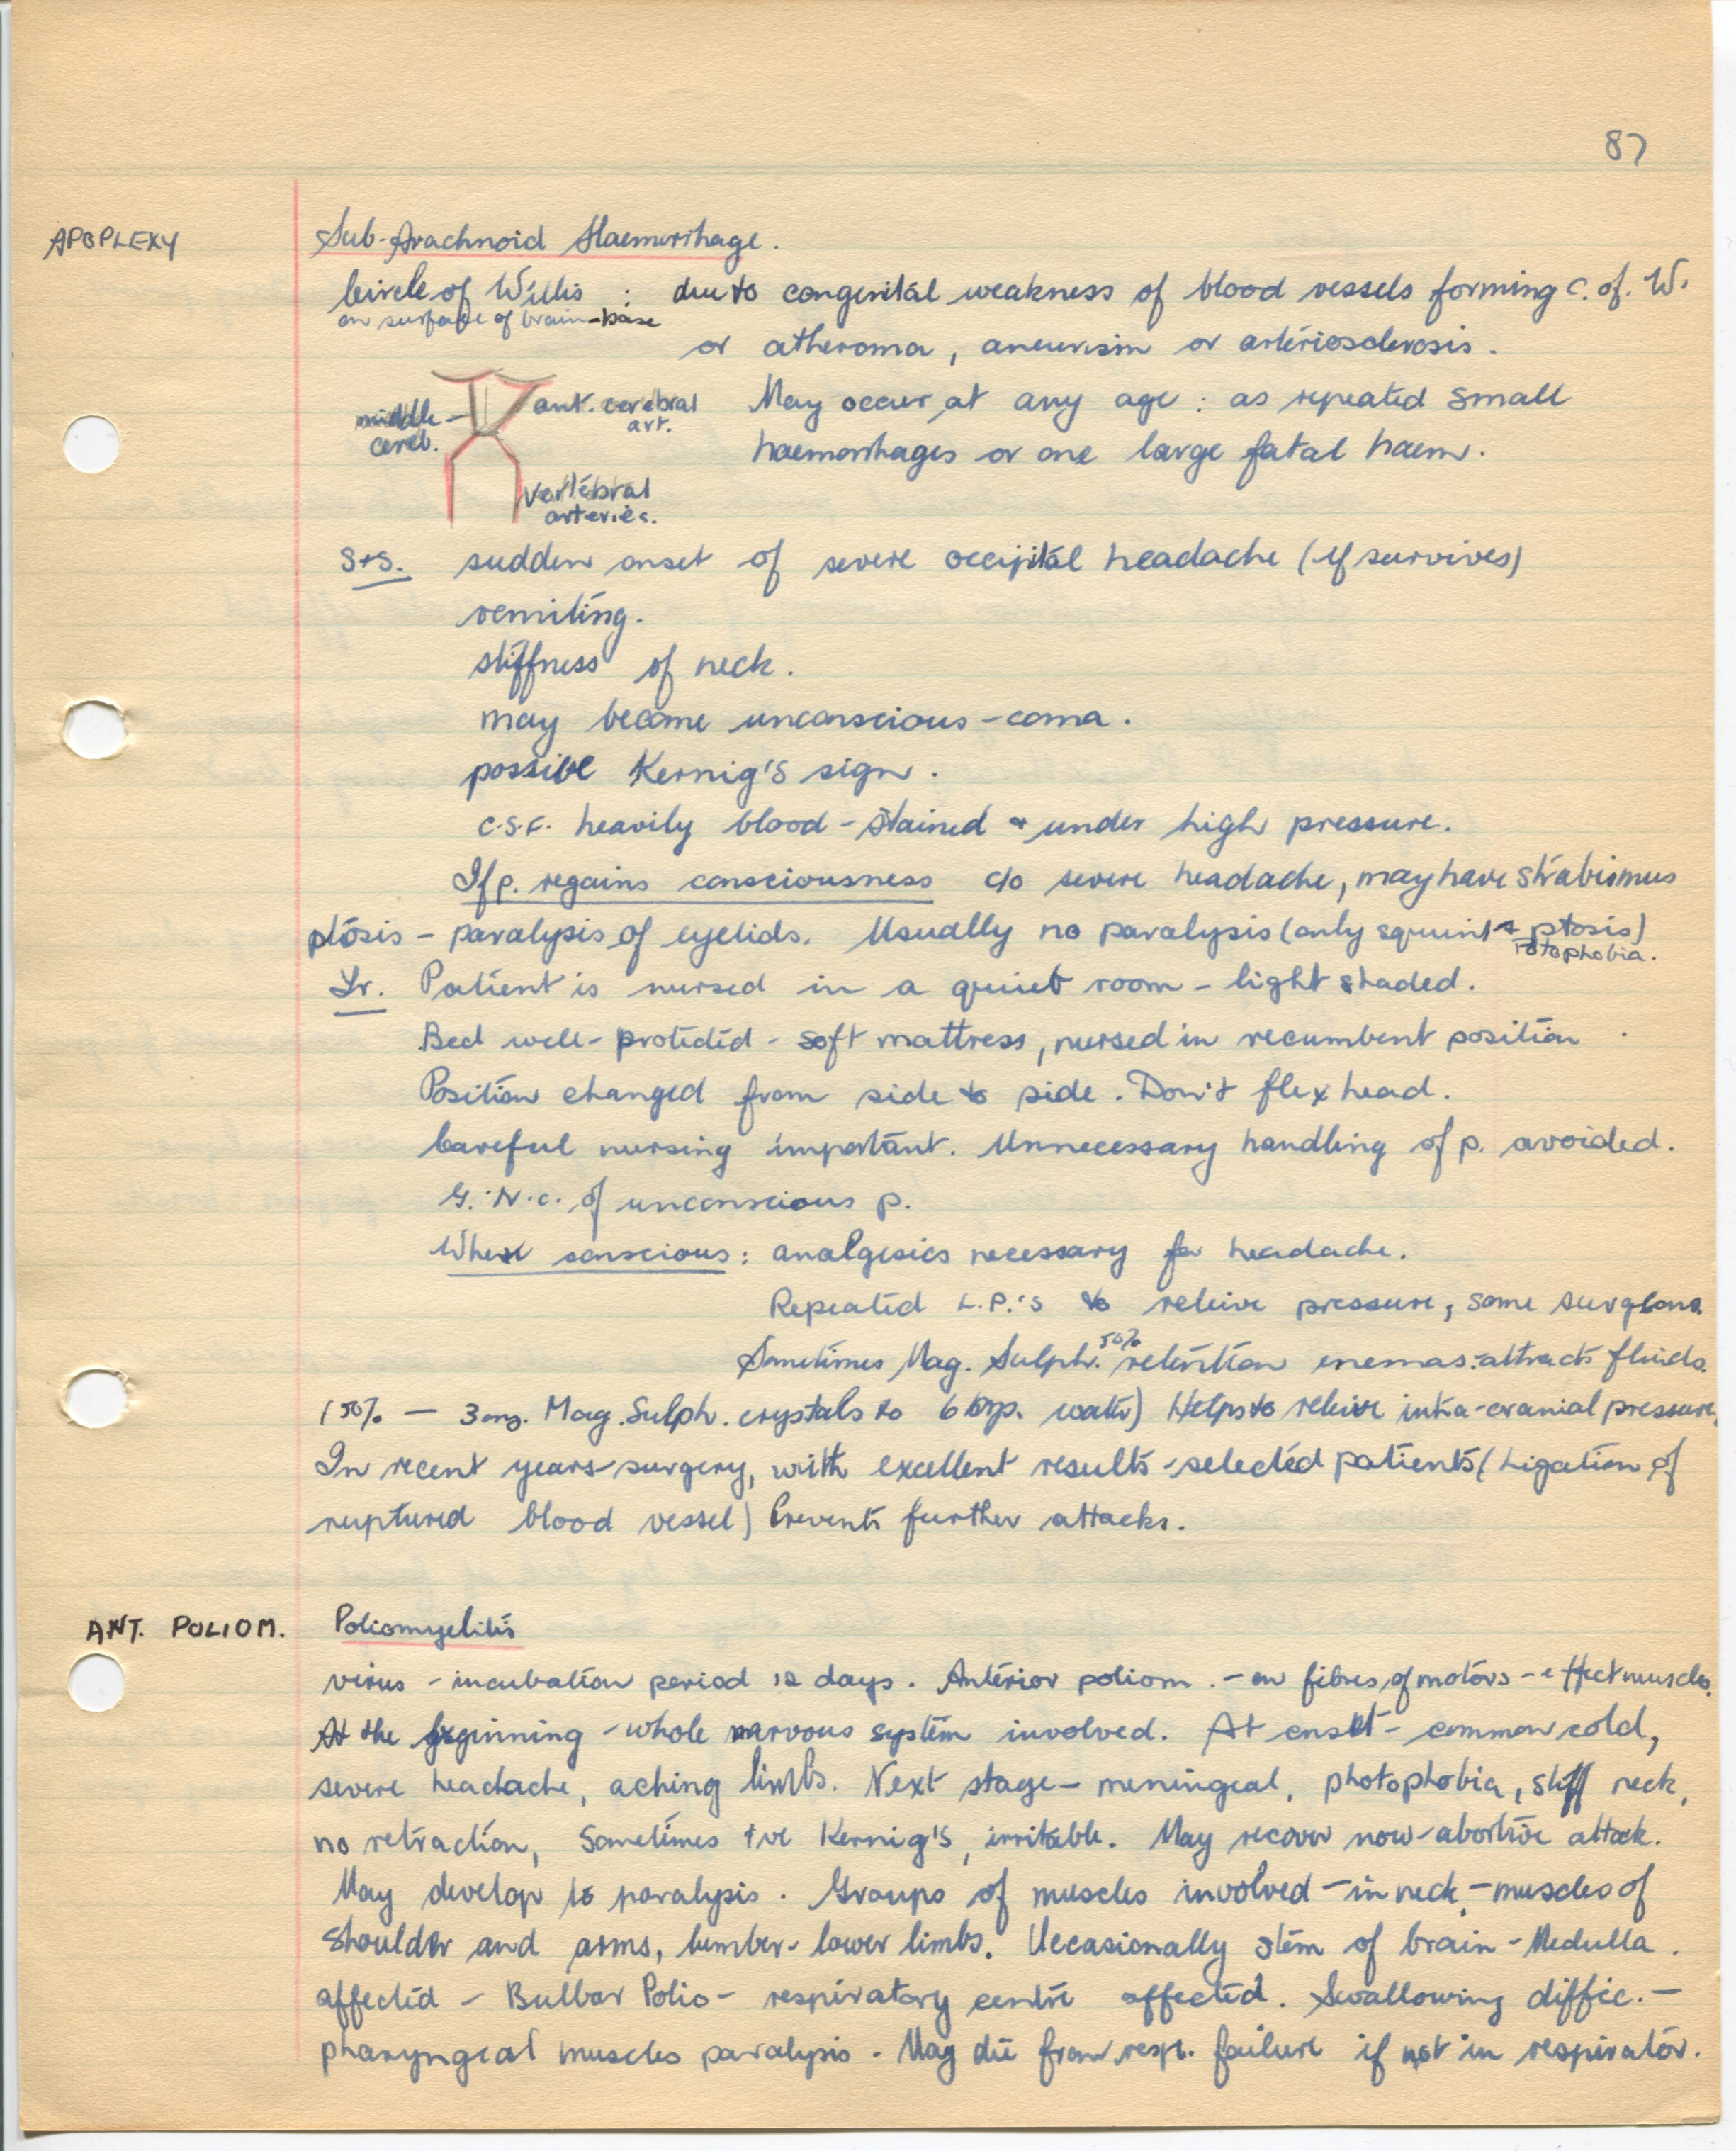 87
APOPLEXY
Sub-Arachnoid Haemorrhage.
Circle of Willis : due to congenital weakness of blood vessels forming C. of. W.
on surface of brain-base
or atheroma, aneurism or arteriosclerosis.
middle cereb.
ant. cerebral art.
May occur at any age : as repeated small
haemorrhages or one large fatal haem.
vertebral arteries.
S+S. sudden onset of severe occipital headache (if survives)
vomiting.
stiffness of neck.
may become unconscious - coma.
possible Kernig's sign.
C.S.F. heavily blood-stained + under high pressure.
If p. regains consciousness c/o severe headache, may have strabismus
ptosis - paralysis of eyelids. Usually no paralysis (only squint + ptosis)
Fotophobia.
Tr. Patient is nursed in a quiet room - light shaded.
Bed well-protected - soft mattress, nursed in recumbent position
Position changed from side to side. Don't flex head.
Careful nursing important. Unnecessary handling of p. avoided.
G.N.C. of unconscious p.
When conscious : analgesics necessary for headache.
Repeated L.P.'s to releive pressure, some surgeons
Sometimes Mag. Sulph. 50% retention enemas:attracts fluids.
(50% - 3 ozs. Mag. Sulph. crystals to 6 ozs. water) Helps to releive intra-cranial pressure.
In recent years-surgery, with excellent results-selected patients (Ligation of
ruptured blood vessel) Prevents further attacks.
ANT. POLIOM.
Poliomyelitis
virus - incubation period 12 days. Anterior poliom. - on fibres of motors - effect muscles.
At the beginning - whole nervous system involved. At onset - common cold,
severe headache, aching limbs. Next stage - meningeal, photophobia, stiff neck,
no retraction, Sometimes +ve Kernig's, irritable. May recover now-abortive attack.
May develop to paralysis. Groups of muscles involved - in neck - muscles of
shoulder and arms, lumber- lower limbs. Occasionally stem of brain - Medulla.
affected - Bulbar Polio - respiratory centre affected. Swallowing diffic. -
pharyngeal muscles paralysis. May die from resp. failure if not in respirator.